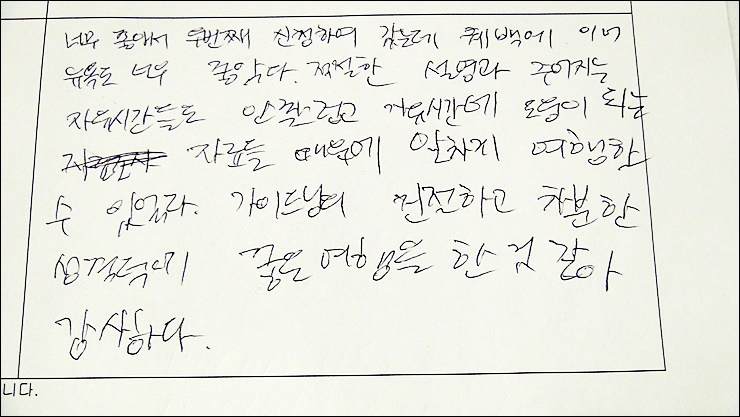 너무 좋아서 두번째 신청하여 갔는데 퀘백에 이어
뉴욕도 너무 좋았다. 적절한 설명과 주어지는
자유시간들도 안찮럽고 자유시간에 도움이 되는
자료들 때문에 알차게 여행할
수 있었다. 가이드님의 친절하고 차분한
성격덕에 좋은 여행을 한 것 같아
감사하다.
니다.